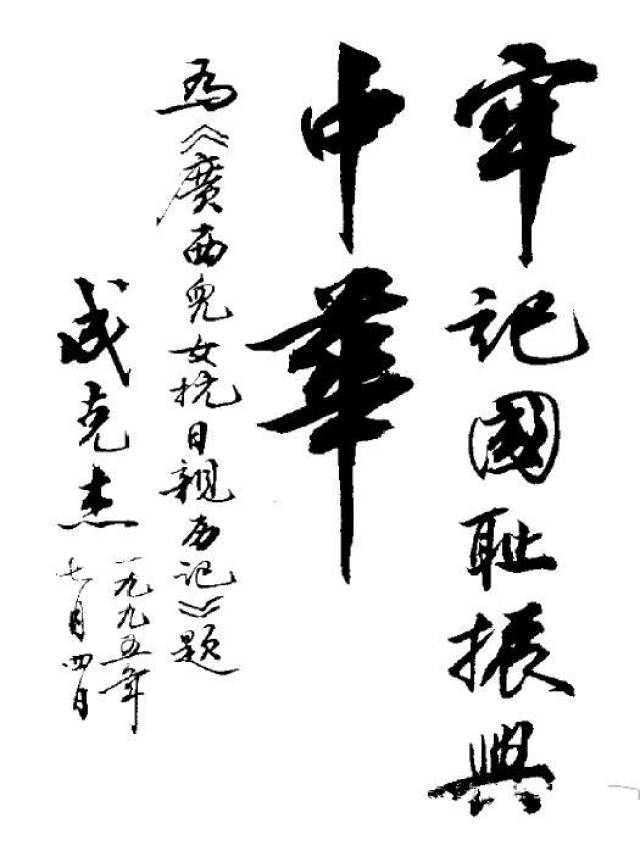 牢记國耻振興
中華
為《廣西兒女抗日親历记》题
成克杰
一九九五年
七月四日